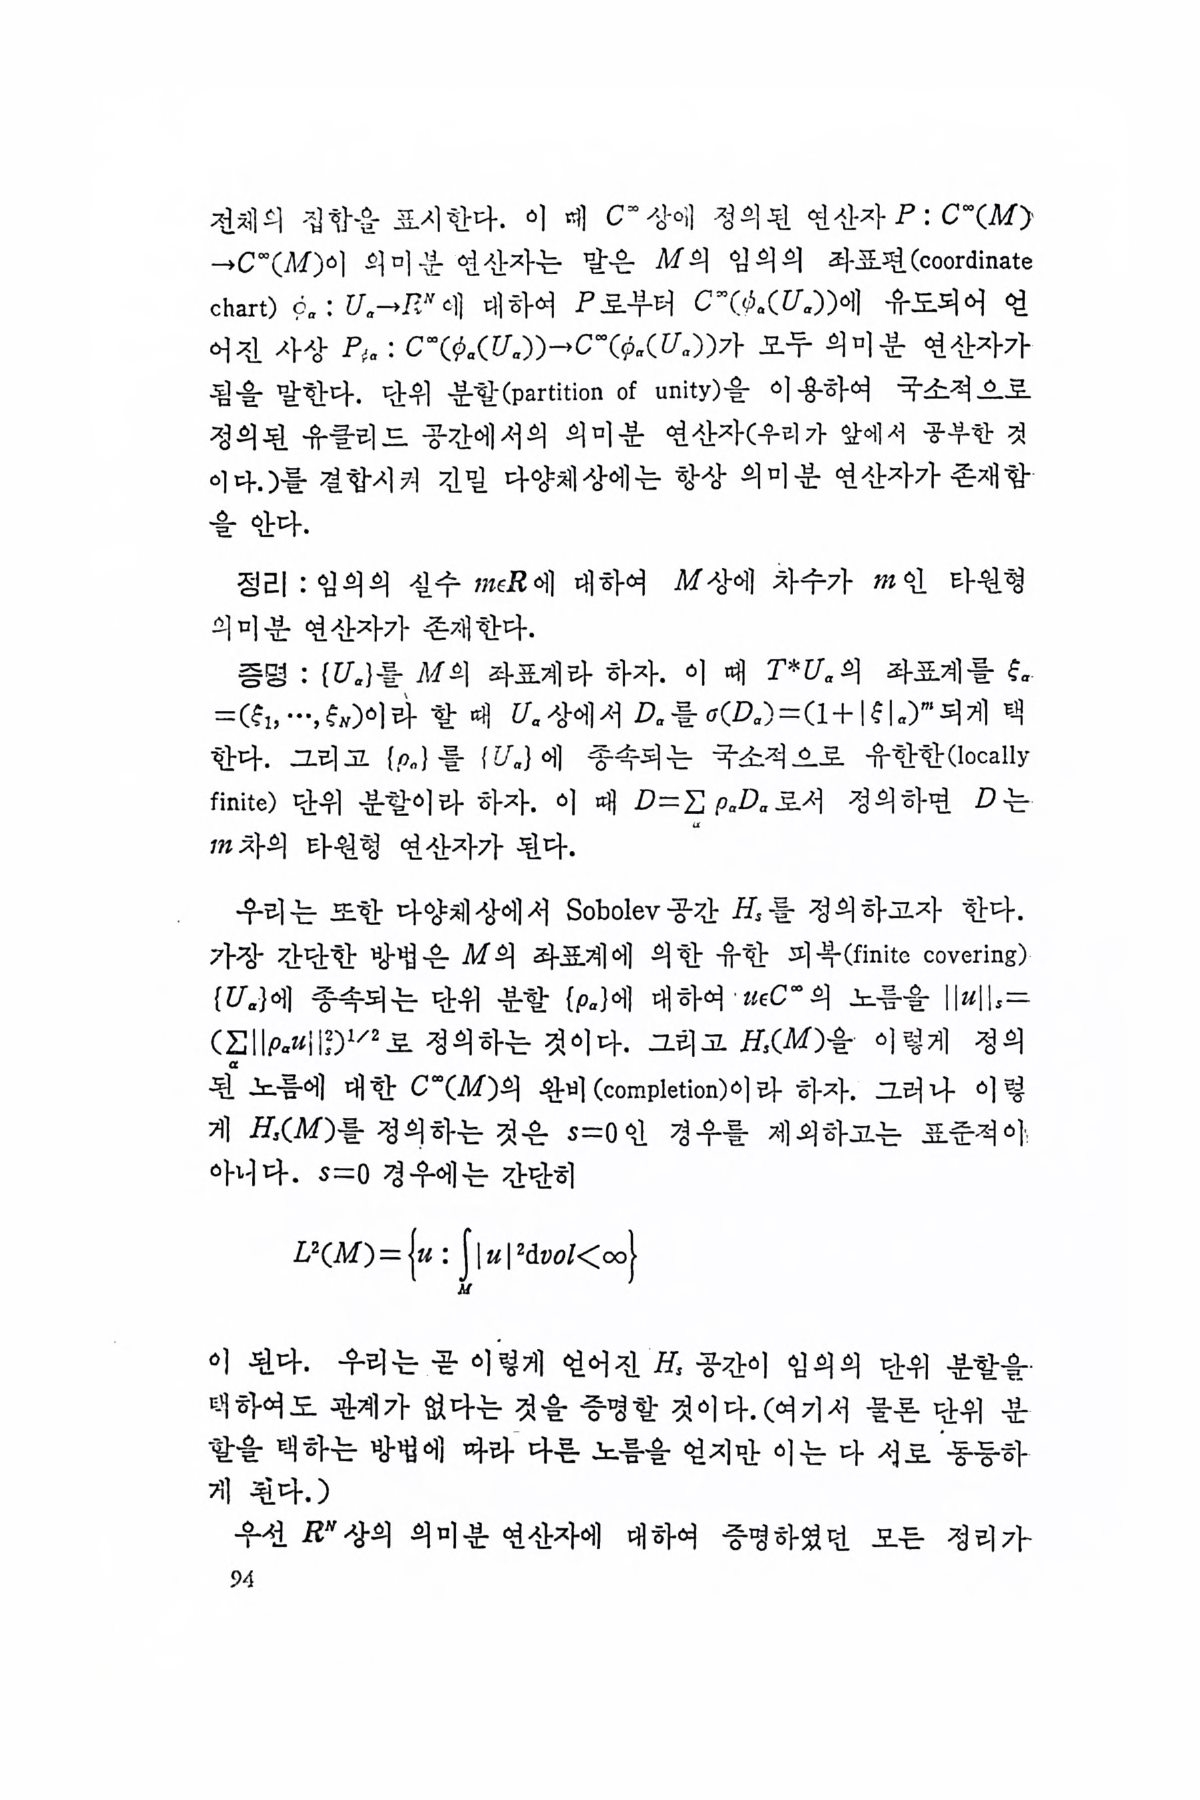 전체의 집합을 표시한다. 이 때 C^∞ 상에 정의된 연산자 P : C^∞(M)
→C^∞(M)이 의미분 연산자는 말은 M의 임의의 좌표편(coordinate
chart) φ_α : U_α→R^N에 대하여 P로부터 C^∞(φ_α(U_α))에 유도되어 얻
어진 사상 P_φα : C^∞(φ_α(U_α))→C^∞(φ_α(U_α))가 모두 의미분 연산자가
됨을 말한다. 단위 분할(partition of unity)을 이용하여 국소적으로
정의된 유클리드 공간에서의 의미분 연산자(우리가 앞에서 공부한 것
이다.)를 결합시켜 긴밀 다양체상에는 항상 의미분 연산자가 존재함
을 안다.
정리 : 임의의 실수 mϵR에 대하여 M상에 차수가 m인 타원형
의미분 연산자가 존재한다.
증명 : {U_α}를 M의 좌표계라 하자. 이 때 T*U_α의 좌표계를 ξ_α
=(ξ_1, …, ξ_N)이라 할 때 U_α상에서 D_α를 σ(D_α)=(1+|ξ|_α)^m되게 택
한다. 그리고 {ρ_α}를 {U_α}에 종속되는 국소적으로 유한한(locally
finite) 단위 분할이라 하자. 이 때 D=∑_α ρ_αD_α로서 정의하면 D는
m차의 타원형 연산자가 된다.
우리는 또한 다양체상에서 Sobolev공간 H_s를 정의하고자 한다.
가장 간단한 방법은 M의 좌표계에 의한 유한 피복(finite covering)
{U_α}에 종속되는 단위 분할 {ρ_α}에 대하여 uϵC^∞의 노름을 ||u||_s=
(∑_α||ρ_αu||_s^2)^1/2로 정의하는 것이다. 그리고 H_s(M)을 이렇게 정의
된 노름에 대한 C^∞(M)의 완비(completion)이라 하자. 그러나 이렇
게 H_s(M)를 정의하는 것은 s=0인 경우를 제외하고는 표준적이
아니다. s=0 경우에는 간단히
L^2(M)={u : ∫_M |u|^2dvol<∞}
이 된다. 우리는 곧 이렇게 얻어진 H_s 공간이 임의의 단위 분할을
택하여도 관계가 없다는 것을 증명할 것이다.(여기서 물론 단위 분
할을 택하는 방법에 따라 다른 노름을 얻지만 이는 다 서로 동등하
게 된다.)
우선 R^N상의 의미분 연산자에 대하여 증명하였던 모든 정리가
94